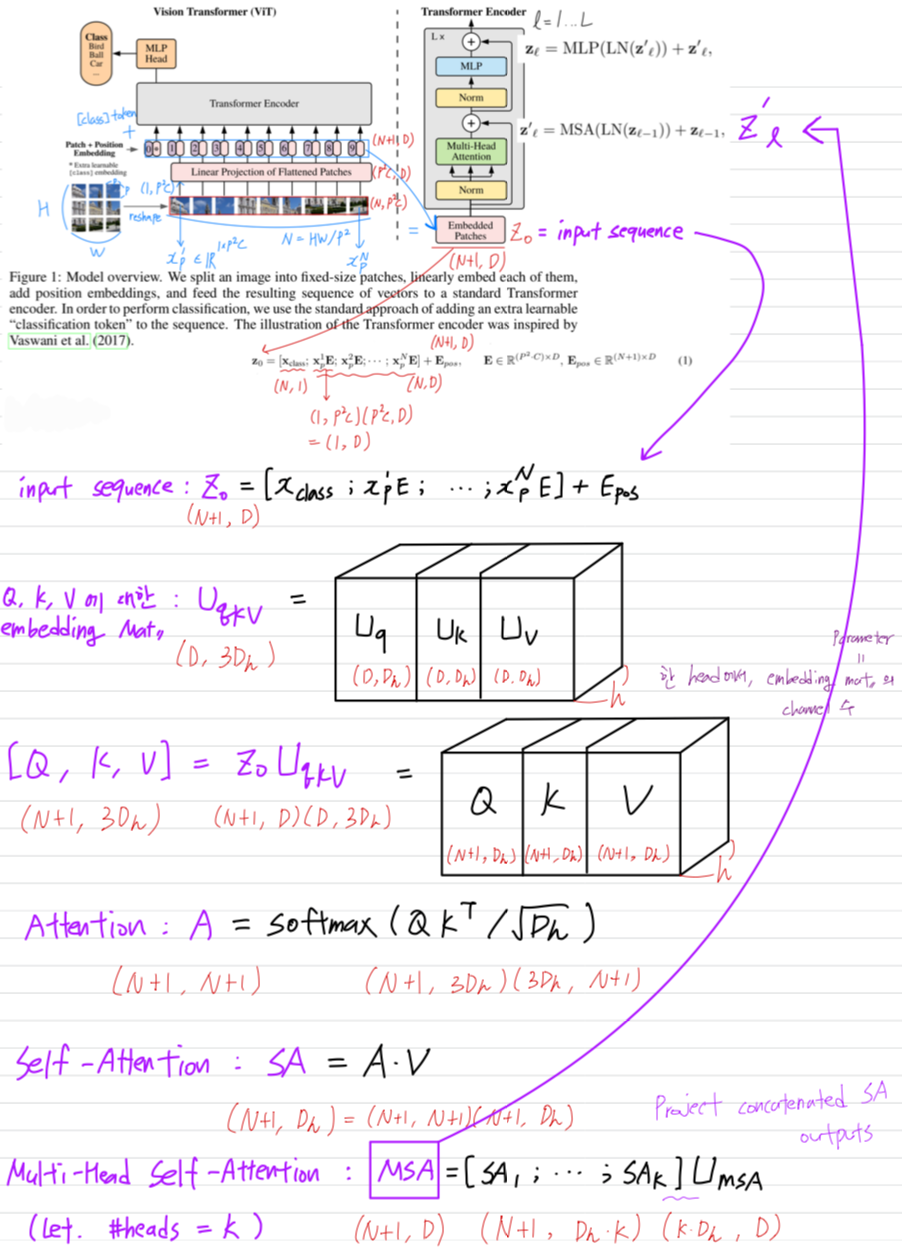 Vision Transformer (ViT)
Class
Bird
Ball
Car
...
MLP
Head
Transformer Encoder
[class] token
+
Patch + Position
Embedding
* Extra learnable
[class] embedding
0* 1 2 3 4 5 6 7 8 9
(N+1, D)
Linear Projection of Flattened Patches
(P²C, D)
(1, P²C)
(N, P²C)
H
W
P
reshape
x¹ₚ ∈ ℝ^(1×P²C)
N = HW/P²
xᴺₚ
Transformer Encoder
l = 1...L
L ×
+
MLP
Norm
+
Multi-Head
Attention
Norm
Embedded
Patches
zℓ = MLP(LN(z′ℓ)) + z′ℓ,
z′ℓ = MSA(LN(zℓ₋₁)) + zℓ₋₁,
z′ℓ
= Z₀ = input sequence
(N+1, D)
Figure 1: Model overview. We split an image into fixed-size patches, linearly embed each of them,
add position embeddings, and feed the resulting sequence of vectors to a standard Transformer
encoder. In order to perform classification, we use the standard approach of adding an extra learnable
“classification token” to the sequence. The illustration of the Transformer encoder was inspired by
Vaswani et al. (2017).
(N+1, D)
z₀ = [x_class; x¹ₚE; x²ₚE; ··· ; xᴺₚE] + E_pos, E ∈ ℝ^((P²·C)×D), E_pos ∈ ℝ^((N+1)×D) (1)
(N, 1)
(N, D)
(1, P²C)(P²C, D)
= (1, D)
input sequence : Z₀ = [x_class ; x¹ₚE ; ··· ; xᴺₚE] + E_pos
(N+1, D)
Q, K, V에 대한 : U_qkv =
embedding Mat.
(D, 3Dₕ)
U_q U_k U_v
(D, Dₕ) (D, Dₕ) (D, Dₕ)
h
Parameter
=
한 head에서, embedding mat. 의
channel 수
[Q, K, V] = Z₀ U_qkv =
(N+1, 3Dₕ) (N+1, D)(D, 3Dₕ)
Q K V
(N+1, Dₕ) (N+1, Dₕ) (N+1, Dₕ)
h
Attention : A = softmax(QKᵀ/√Dₕ)
(N+1, N+1) (N+1, 3Dₕ)(3Dₕ, N+1)
Self-Attention : SA = A·V
(N+1, Dₕ) = (N+1, N+1)(N+1, Dₕ)
Project concatenated SA
outputs
Multi-Head Self-Attention : MSA = [SA₁ ; ··· ; SAₖ] U_MSA
(Let. #heads = k) (N+1, D) (N+1, Dₕ·k) (k·Dₕ, D)